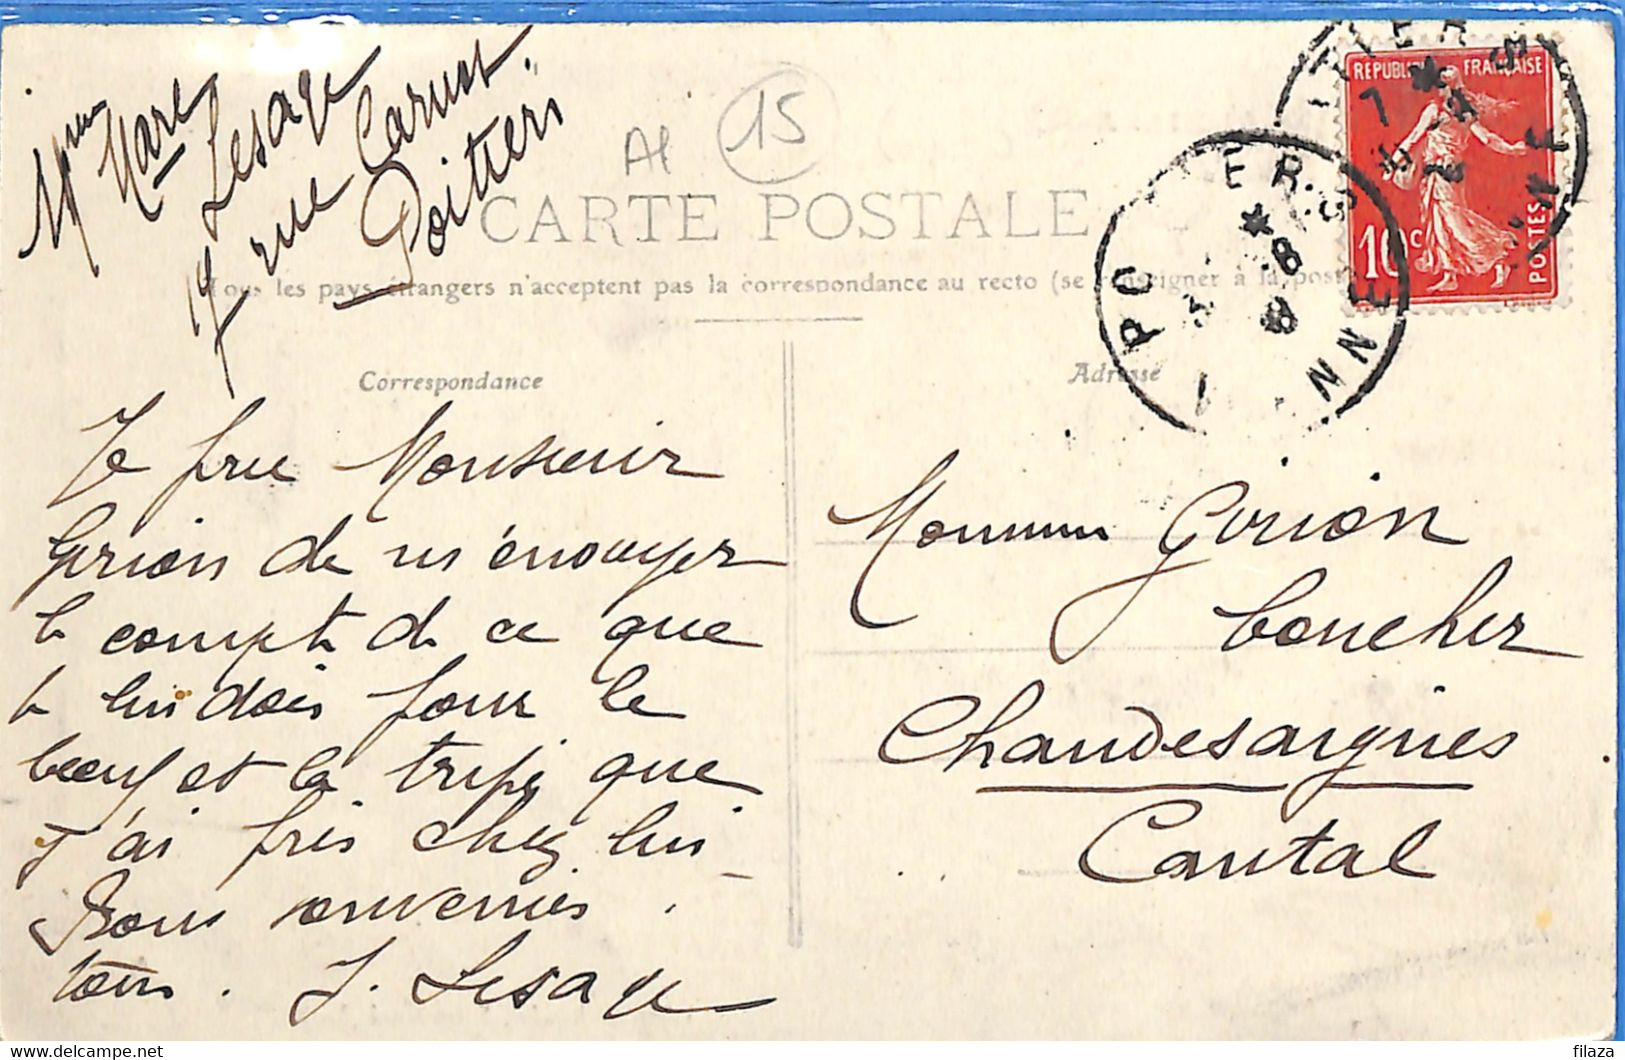 Mme Mare
Lesage
7 rue Carnot
Poitiers
Al
15
CARTE POSTALE
Tous les pays étrangers n'acceptent pas la correspondance au recto (se renseigner à la poste)
REPUBLIQUE FRANÇAISE
10c
POSTES
POITIERS
VIENNE
Correspondance
Adresse
Je prie Monsieur
Girion de m'envoyer
le compte de ce que
je lui dois pour le
boeuf et la tripe que
j'ai pris chez lui
Bons souvenirs
J. Lesage
Monsieur Girion
boucher
Chaudesaigues
Cantal
delcampe.net
filaza